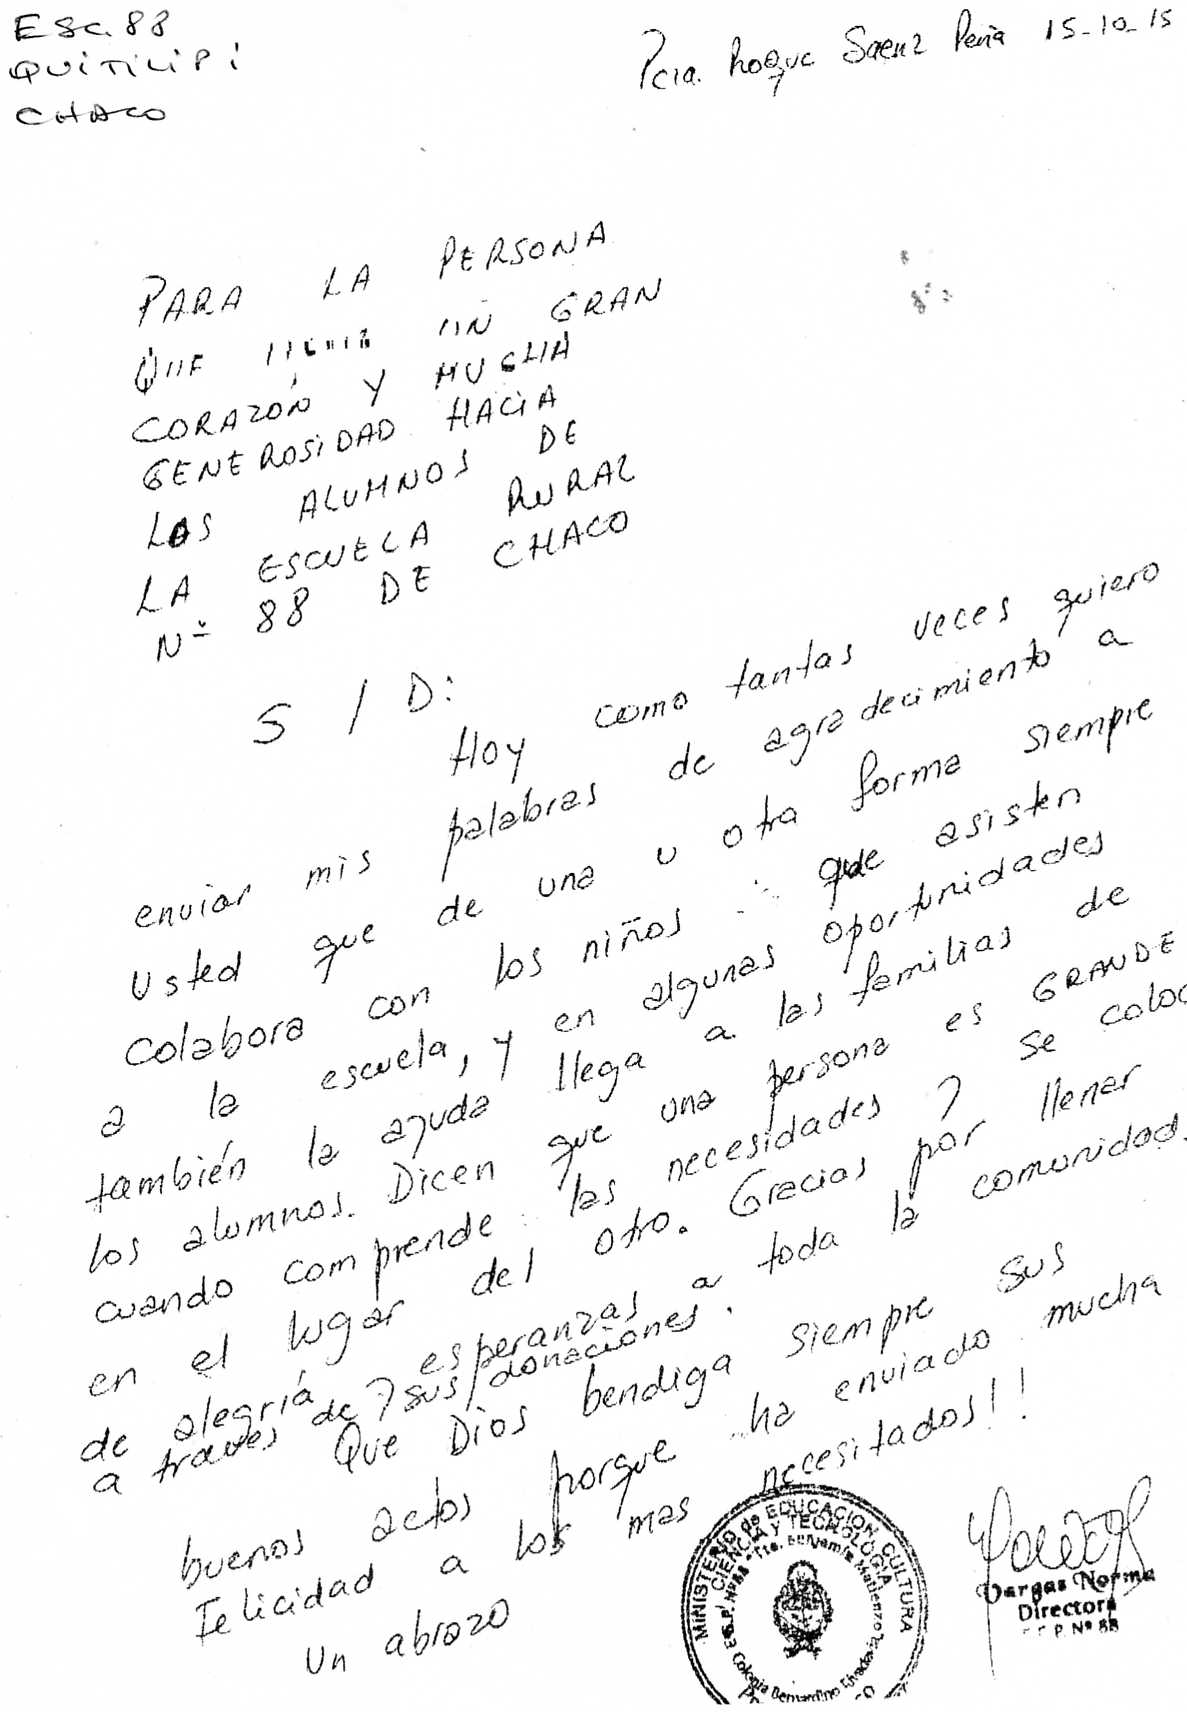 ESC. 88
QUITILIPI
CHACO
Pcia. Roque Saenz Peña 15-10-15
PARA LA PERSONA
QUE UN GRAN
CORAZÓN Y MUCHA
GENEROSIDAD HACIA
LOS ALUMNOS DE
LA ESCUELA RURAL
Nº 88 DE CHACO
S / D:
Hoy como tantas veces quiero
enviar mis palabras de agradecimiento a
Usted que de una u otra forma siempre
colabora con los niños que asisten
a la escuela, y en algunas oportunidades
también la ayuda llega a las familias de
los alumnos. Dicen que una persona es GRANDE
cuando comprende las necesidades y se coloc
en el lugar del otro. Gracias por llenar
de alegría y esperanzas a toda la comunidad.
a traves de sus donaciones.
Que Dios bendiga siempre sus
buenos actos porque ha enviado mucha
Felicidad a los mas necesitados!!
Un abrazo
MINISTERIO de EDUCACION, CULTURA
CIENCIA Y TECNOLOGIA
E.G.P. Nº 88 "Tte. Benjamín Matienzo"
Colonia Bernardino Rivadavia
Vargas Norma
Directora
E.G.P. Nº 88